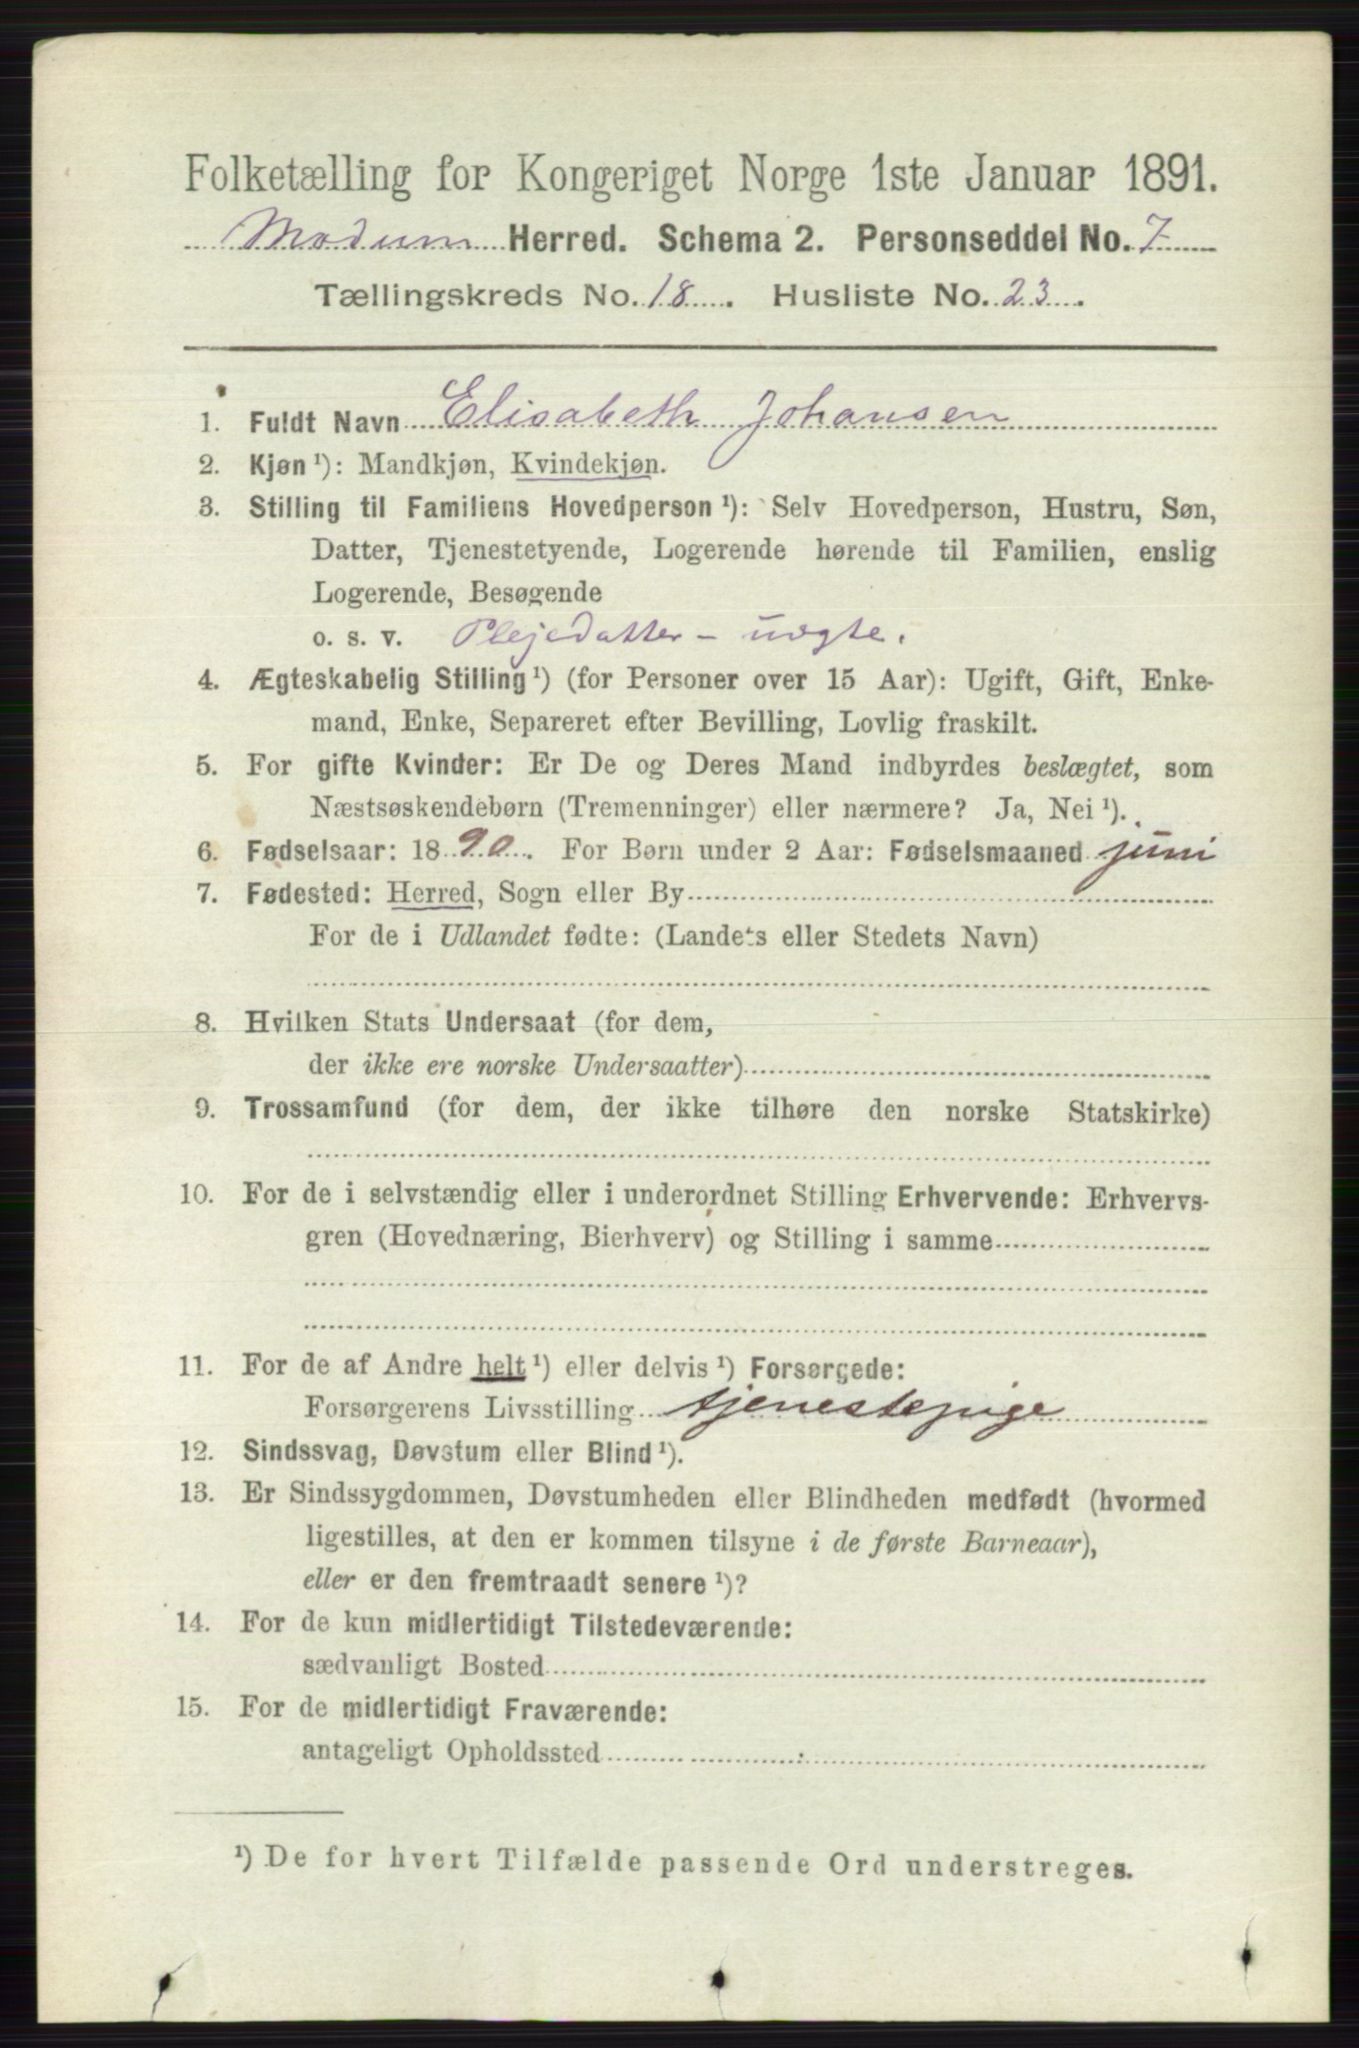 Folketælling for Kongeriget Norge 1ste Januar 1891.
Modum Herred. Schema 2. Personseddel No. 7
Tællingskreds No. 18. Husliste No. 23.
1. Fuldt Navn Elisabeth Johansen
2. Kjøn ¹): Mandkjøn, Kvindekjøn.
3. Stilling til Familiens Hovedperson ¹): Selv Hovedperson, Hustru, Søn,
Datter, Tjenestetyende, Logerende hørende til Familien, enslig
Logerende, Besøgende
o. s. v. Plejedatter - uægte.
4. Ægteskabelig Stilling ¹) (for Personer over 15 Aar): Ugift, Gift, Enke-
mand, Enke, Separeret efter Bevilling, Lovlig fraskilt.
5. For gifte Kvinder: Er De og Deres Mand indbyrdes beslægtet, som
Næstsøskendebørn (Tremenninger) eller nærmere? Ja, Nei ¹).
6. Fødselsaar: 1890. For Børn under 2 Aar: Fødselsmaaned juni
7. Fødested: Herred, Sogn eller By
For de i Udlandet fødte: (Landets eller Stedets Navn)
8. Hvilken Stats Undersaat (for dem,
der ikke ere norske Undersaatter)
9. Trossamfund (for dem, der ikke tilhøre den norske Statskirke)
10. For de i selvstændig eller i underordnet Stilling Erhvervende: Erhvervs-
gren (Hovednæring, Bierhverv) og Stilling i samme
11. For de af Andre helt ¹) eller delvis ¹) Forsørgede:
Forsørgerens Livsstilling tjenestepige
12. Sindssvag, Døvstum eller Blind ¹).
13. Er Sindssygdommen, Døvstumheden eller Blindheden medfødt (hvormed
ligestilles, at den er kommen tilsyne i de første Barneaar),
eller er den fremtraadt senere ¹)?
14. For de kun midlertidigt Tilstedeværende:
sædvanligt Bosted
15. For de midlertidigt Fraværende:
antageligt Opholdssted
¹) De for hvert Tilfælde passende Ord understreges.